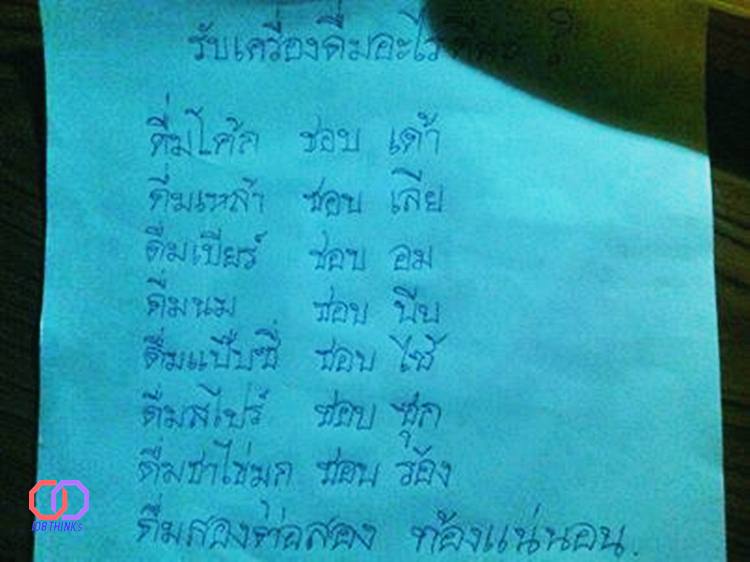 รับเครื่องดื่มอะไรดีคะ ?
ดื่มโค้ก ชอบ เด้า
ดื่มเหล้า ชอบ เลีย
ดื่มเบียร์ ชอบ อม
ดื่มนม ชอบ บีบ
ดื่มแป๊บซี่ ชอบ ไซ้
ดื่มสไปร์ ชอบ ซุก
ดื่มชาไข่มุก ชอบ ร้อง
ดื่มสองต่อสอง ท้องแน่นอน.
JOBTHINKs